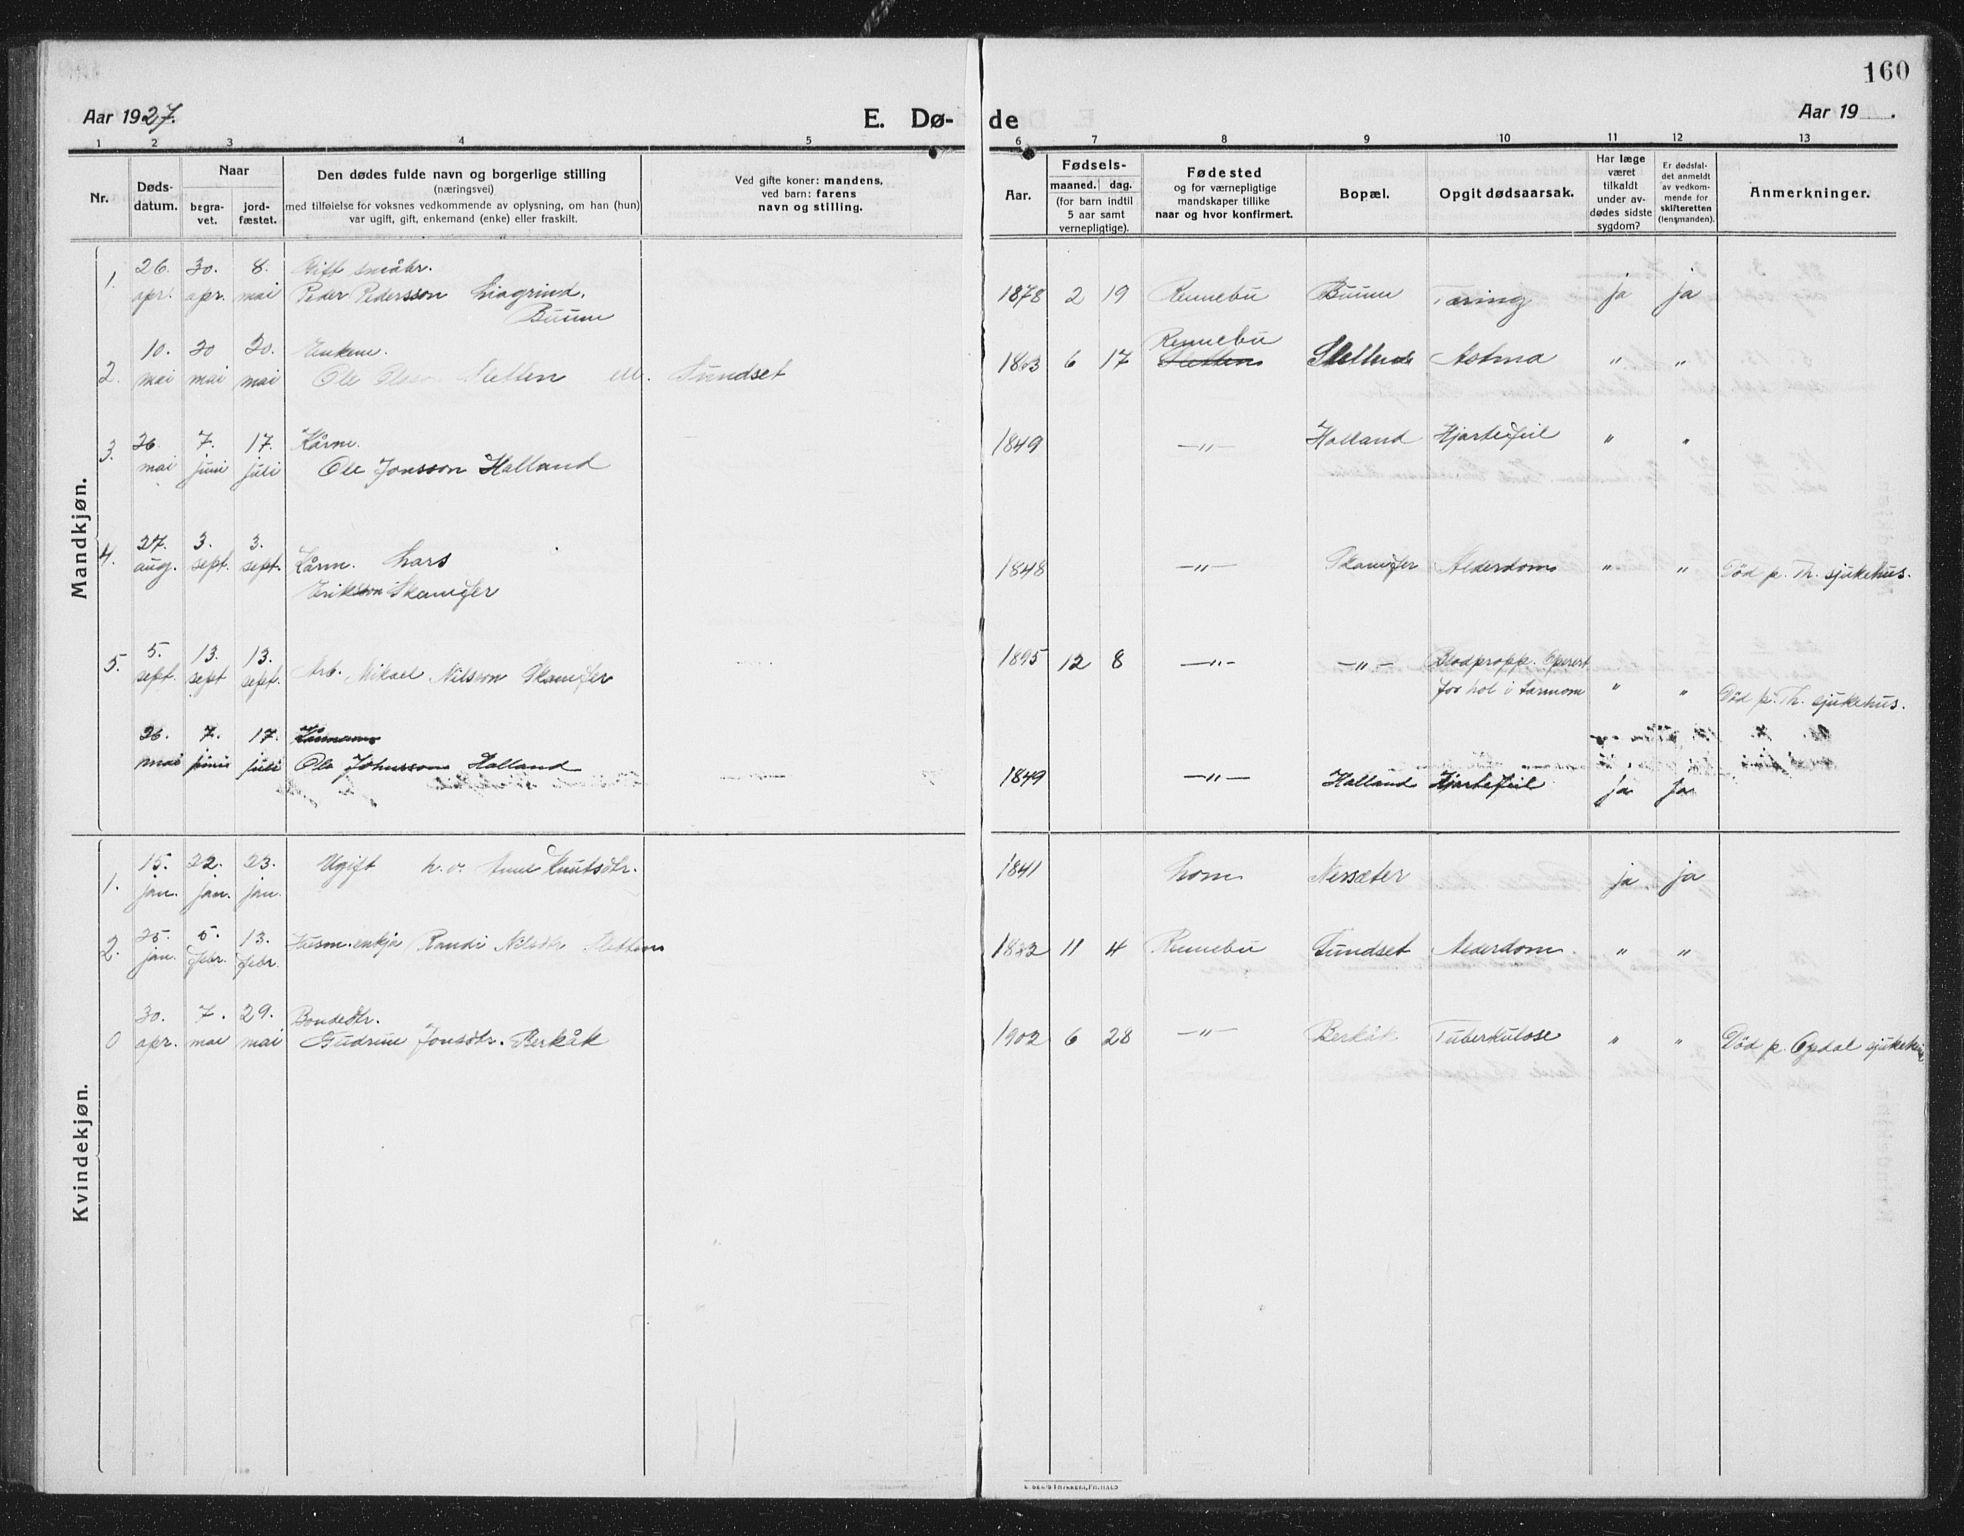 160
Aar 1927.
E. Dø-
de
Aar 19 .
1 2 3 4 5 6 7 8 9 10 11 12 13
Nr.
Døds-
datum.
Naar
begra-
vet.
jord-
fæstet.
Den dødes fulde navn og borgerlige stilling
(næringsvei)
med tilføielse for voksnes vedkommende av oplysning, om han (hun)
var ugift, gift, enkemand (enke) eller fraskilt.
Ved gifte koner: mandens,
ved barn: farens
navn og stilling.
Aar.
Fødsels-
maaned. dag.
(for barn indtil
5 aar samt
vernepligtige).
Fødested
og for værnepligtige
mandskaper tillike
naar og hvor konfirmert.
Bopæl.
Opgit dødsaarsak.
Har læge
været
tilkaldt
under av-
dødes sidste
sygdom?
Er dødsfal-
det anmeldt
av vedkom-
mende for
skifteretten
(lensmanden).
Anmerkninger.
Mandkjøn.
1. 26. apr. 30. apr. 8. mai
Gift småbr.
Peder Pedersson Liagrind,
Buum
1878 2 19 Rennebu Buum Tæring ja ja
2. 10. mai 20 mai 20. mai
Enkem.
Ole Sletten
Tundset
1863 6 17 Rennebu
Sletten Astma " "
3. 26 mai 7. juni 17. juli
Kårm.
Ole Jonsson Halland
1849 —"— Halland Hjartefeil " "
4. 27. aug. 3. sept. 3. sept.
Kårm. Lars
Eriksson Skamfer
1848 —"— Skamfer Alderdom " " Död p. Th. sjukehus.
5. 5. sept. 13. sept 13. sept.
Arb. Mikael Nilsson Skamfer
1895 12 8 —"— —"— Blodpropp. Operert
for hol i tarmom " " Död p. Th. sjukehus.
26. mai 7. juni 17. juli
Ole Johnsson Halland
1849 —"— Halland Hjartefeil ja ja
Kvindekjøn.
1. 15. jan. 22. jan. 23. jan.
Ugift Anne Knutsdtr.
1841 Lom Nersæter ja ja
2. 25. jan. 5. febr. 13. febr.
Husm. enkja Randi Nilsdtr. Sletten
1832 11 4 Rennebu Tundset Alderdom " "
0 30. apr. 7. mai 29. mai
Bondedtr.
Gudrun Jonsdtr. Berkåk
1902 6 28 —"— Berkåk Tuberkulose " " Död p. Opdal sjukehus